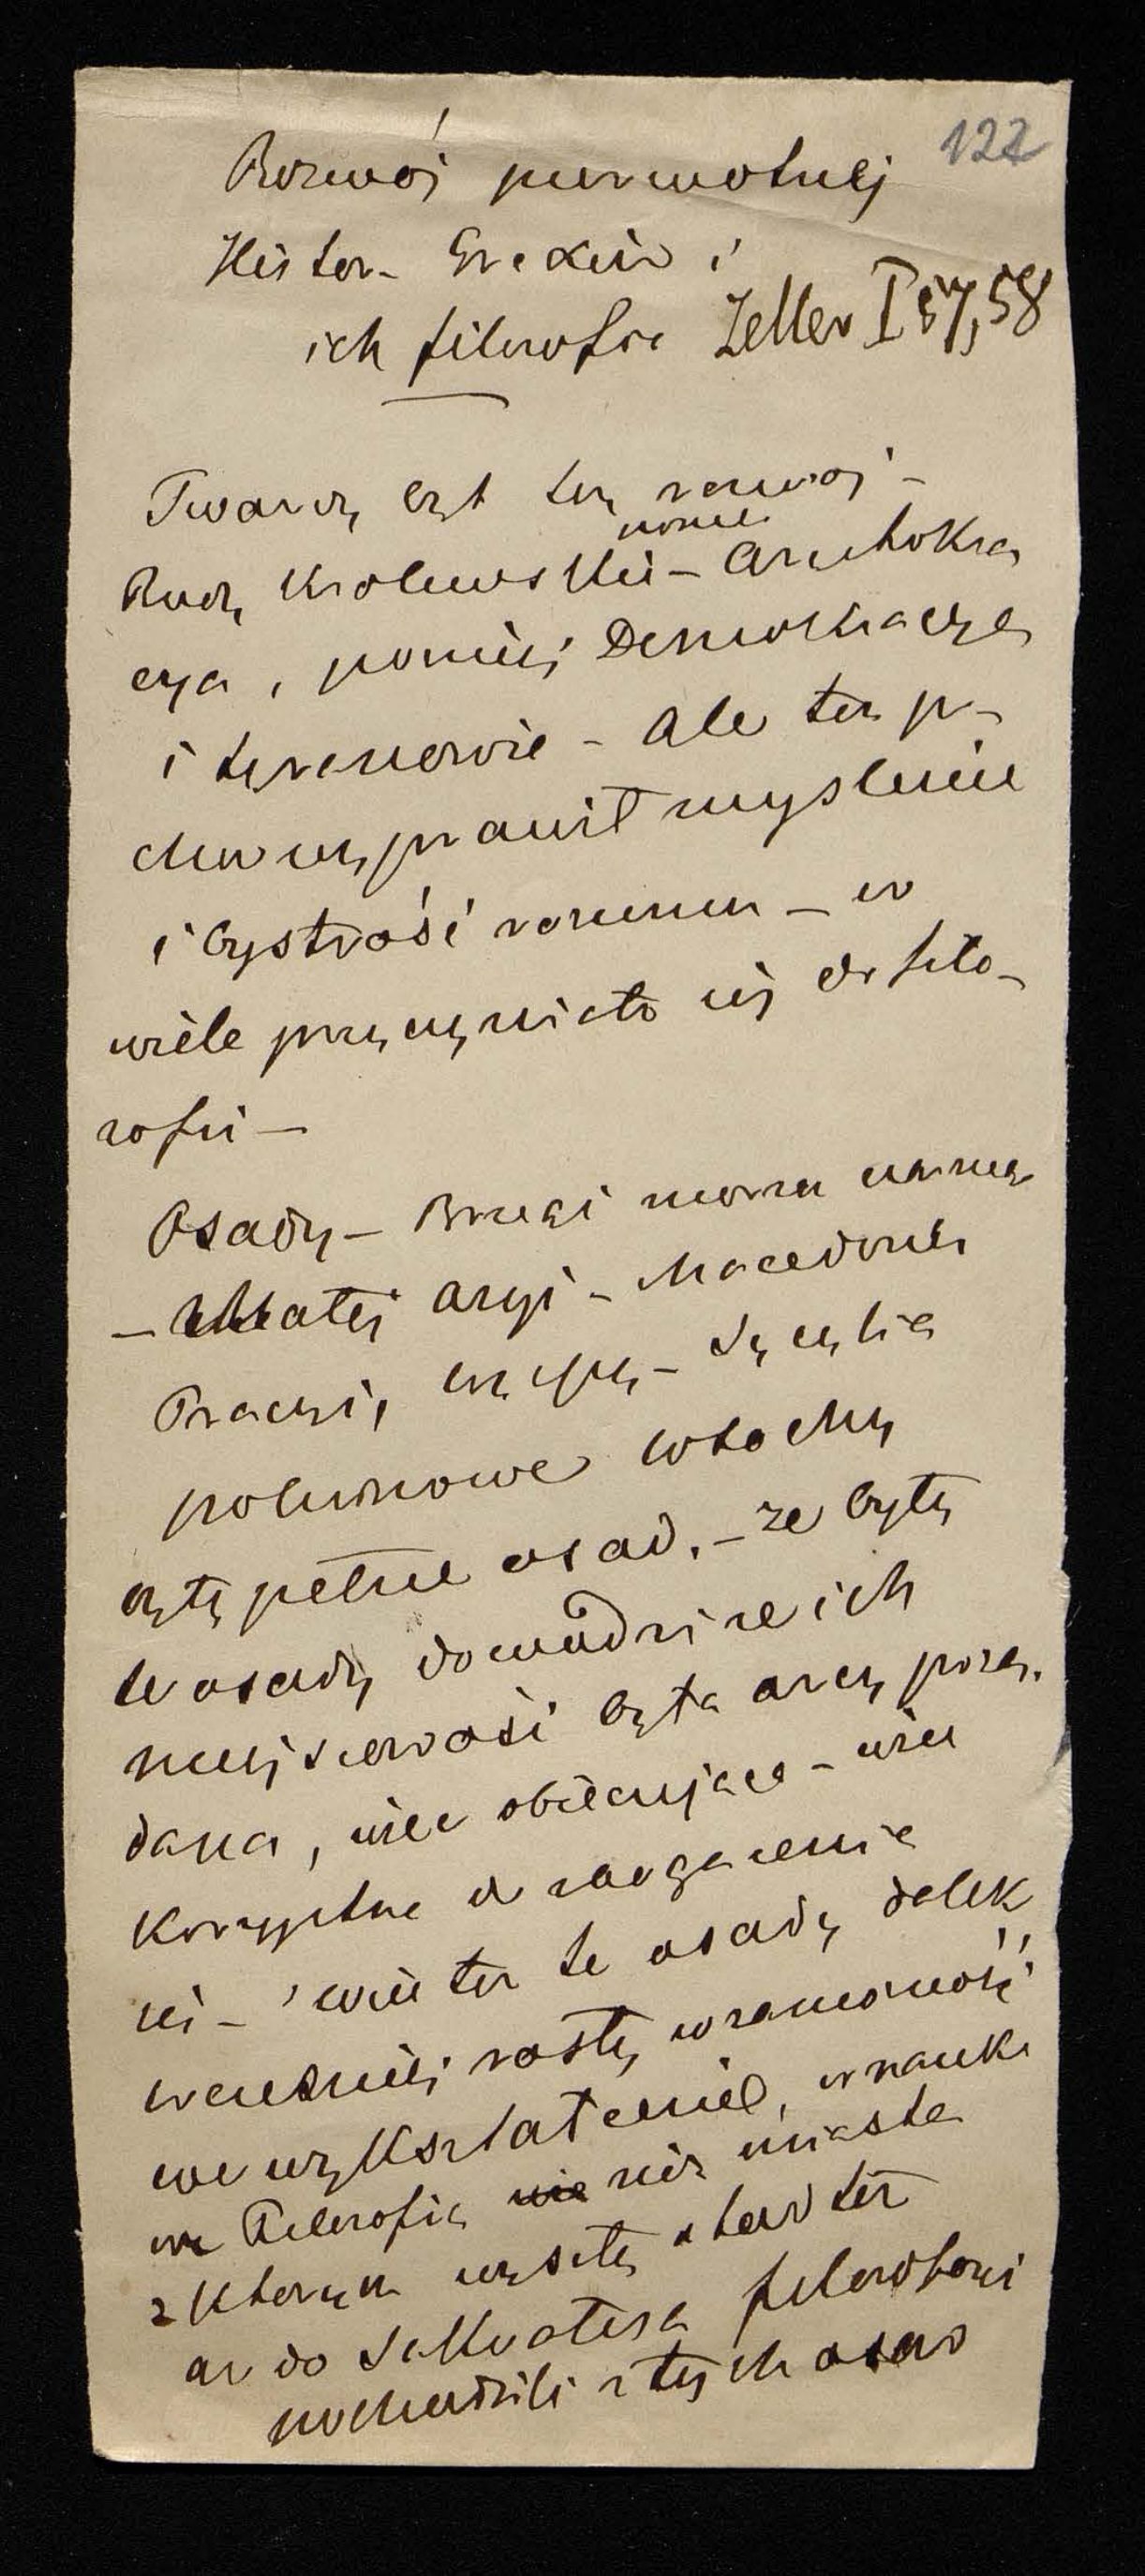 122
Rozwój pierwotnej
Histor. Greków i
ich filozofia Zeller I 57, 58
Twardy był ten rozwój –
Rządy Królewskie – Arystokra
cya, poniej Demokracya
i tyranowie – ale ten
wyprawił myślenie
i bystrość rozumu – w
wiele przyczyniło się do filo-
zofii –
Osady – Brzegi morza
– Małej Azyi – Macedonia
Tracyi, – Sycylia
południowe Włochy
były pełne osad, – że były
te osady dowodzi że ich
miejscowość była arcy pożą.
dana, wiec obiecujące – wiec
Korzystne do zbogacenia
się – więc też te osady
wcześniej rosły w zamożność
we wykształcenie, w nauki
we Filozofią nie niż miasta
z Których wyszły stąd też
aż do Sokratesa filozofowi
pochodzili z tych osad